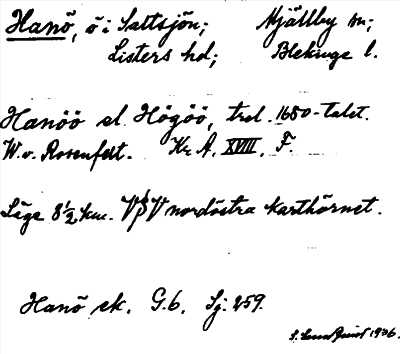 Hanö, ö i Saltsjön; Mjällby sn;
Listers hd; Blekinge l.
Hanöö el. Högöö, trol. 1680-talet.
W. v. Rosenfelt. Kr. A. XVIII. F.
Läge 8 1/2 km. VSV nordöstra karthörnet.
Hanö ek. G.b. Sj. 259.
S. Lundquist 1936.